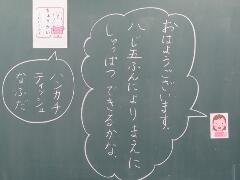 おはようございます。
八じ五ふんになりまえに
しゅっぱつできるかな。
ハンカチ
ティッシュ
なふだ